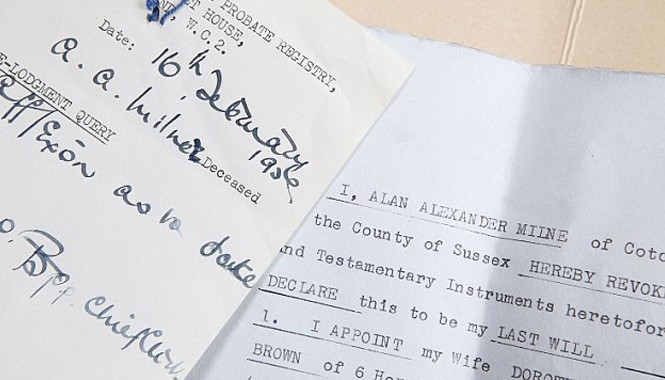 PROBATE REGISTRY,
HOUSE,
W.C.2.
Date: 16th February
1956
A. A. Milne Deceased
E-LODGMENT QUERY
as to date
I, ALAN ALEXANDER MILNE of Cotc
the County of Sussex HEREBY REVOK
nd Testamentary Instruments heretofor
DECLARE this to be my LAST WILL
1. I APPOINT my Wife DOROT
BROWN of 6 Ho